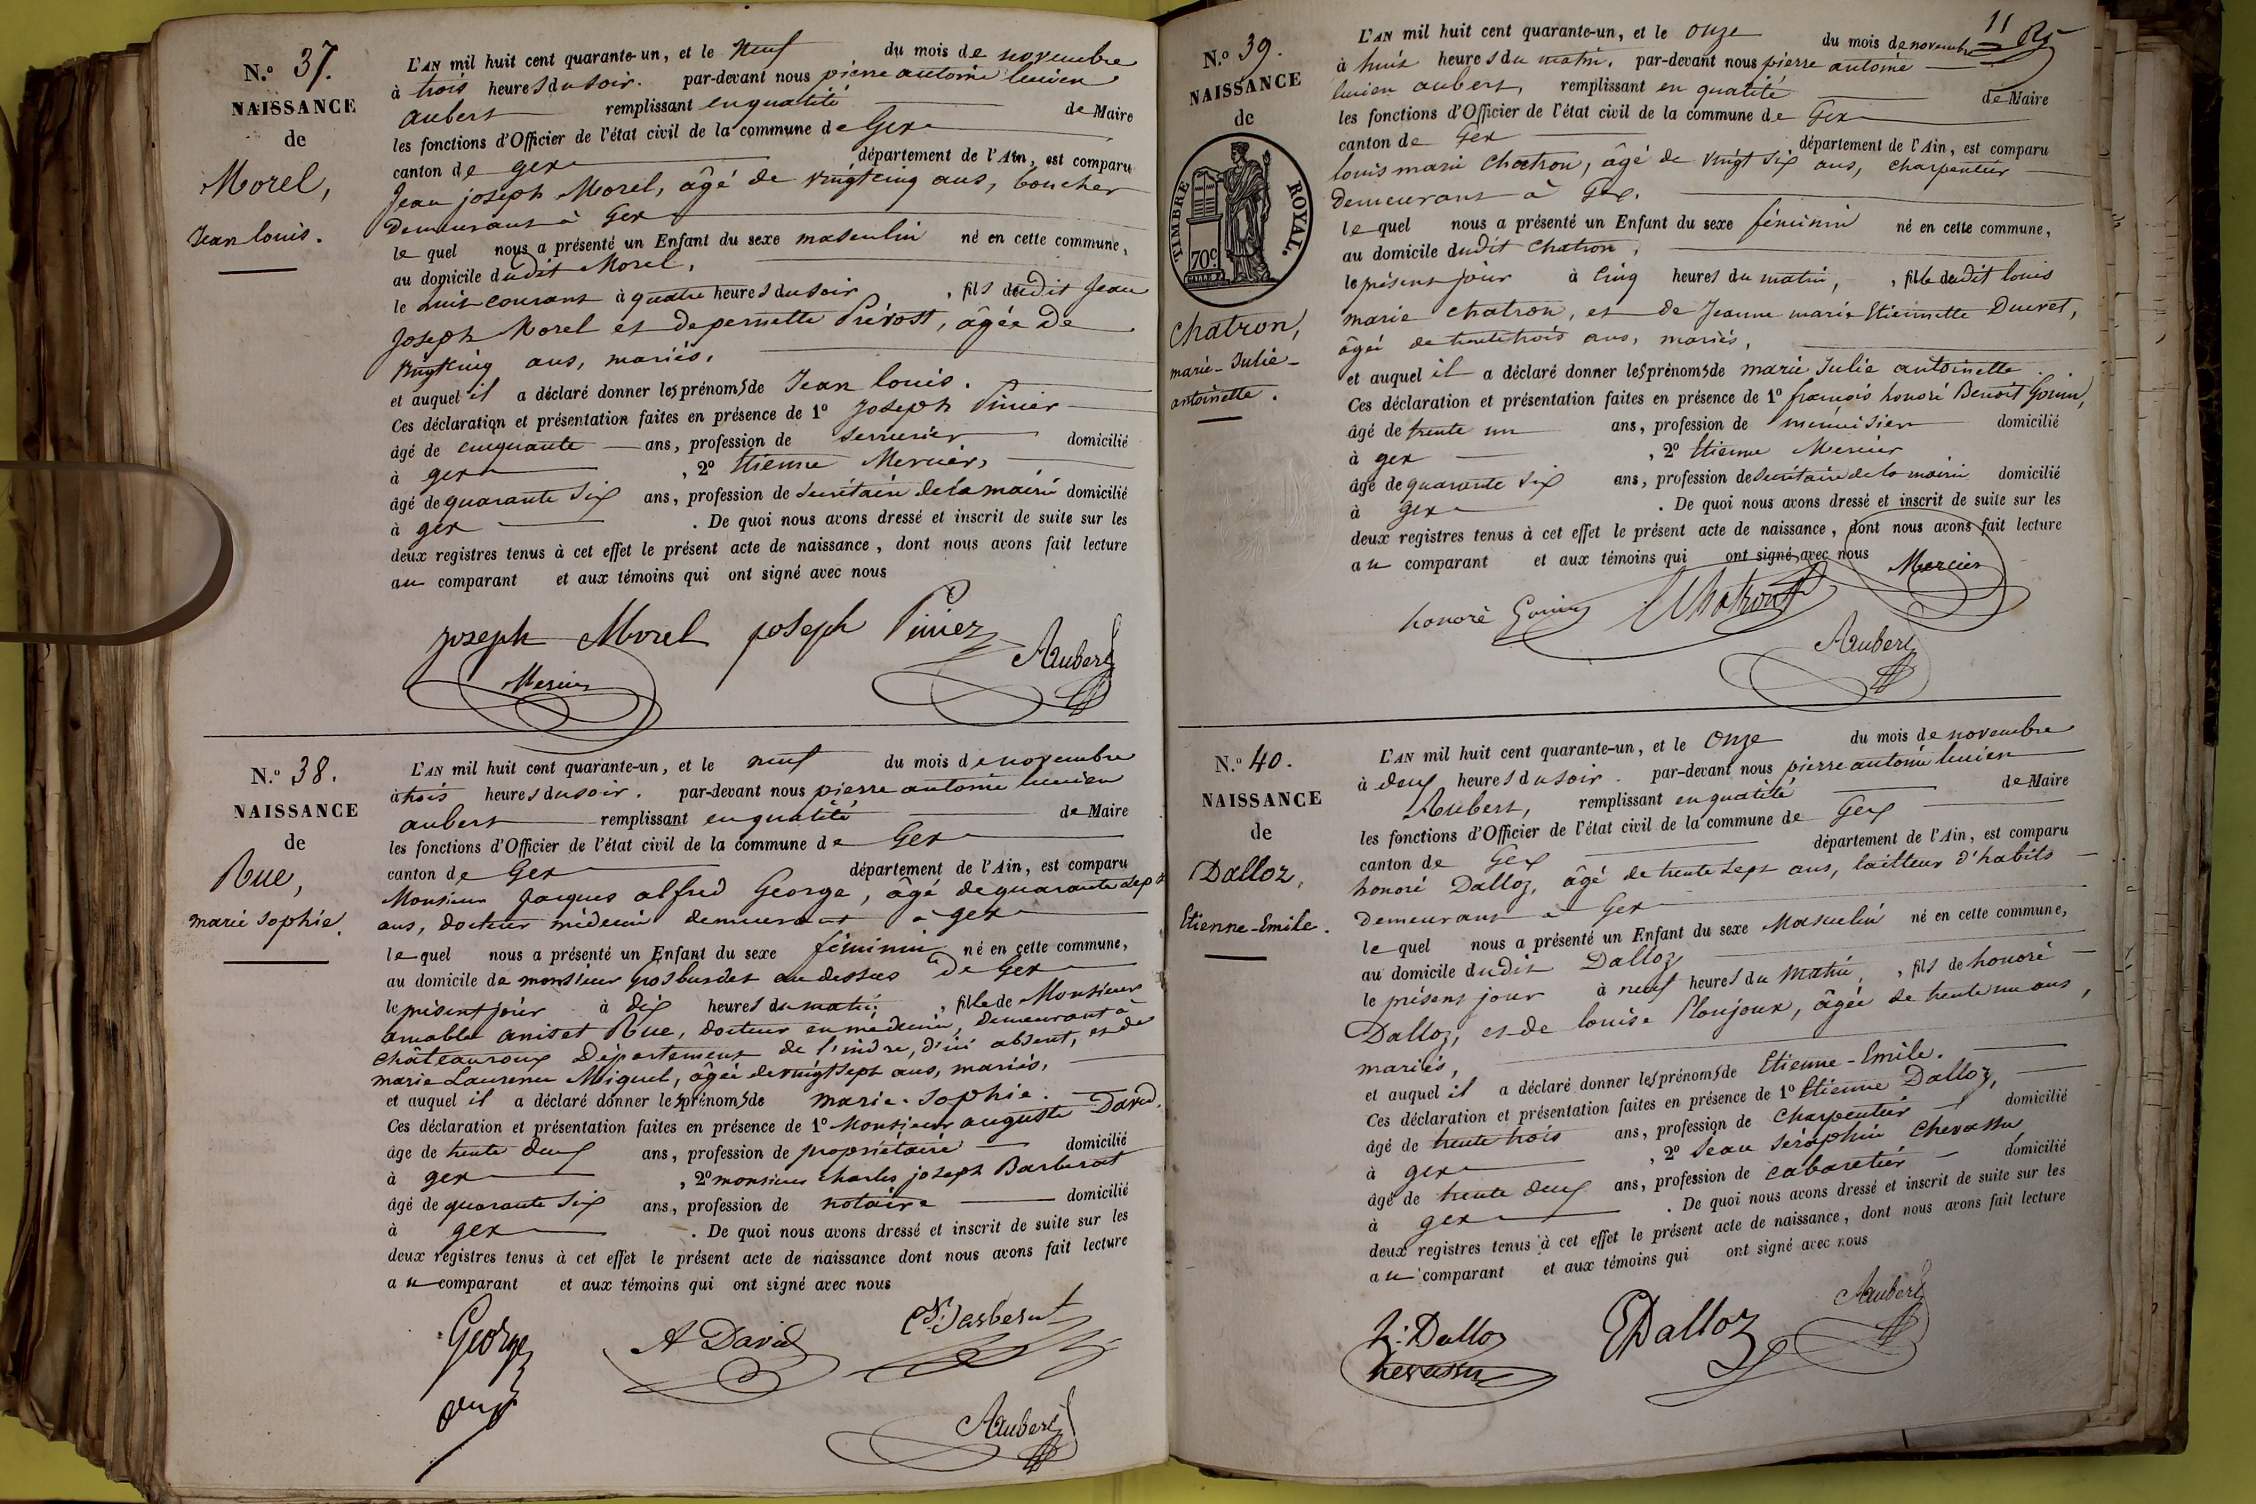 N.º 37.
NAISSANCE
de
Morel,
Jean louis.
L'AN mil huit cent quarante-un, et le neuf du mois de novembre
à trois heures du soir. par-devant nous pierre antoine lucien
aubert remplissant en qualité de Maire
les fonctions d'Officier de l'état civil de la commune de Gex
canton de gex département de l'Ain, est comparu
Jean joseph Morel, âgé de vingt cinq ans, boucher
demeurant à Gex
le quel nous a présenté un Enfant du sexe masculin né en cette commune,
au domicile dudit Morel,
le huit courant à quatre heures du soir, fils dudit Jean
Joseph Morel et de pernette Prévost, âgée de
vingt cinq ans, mariés,
et auquel il a déclaré donner les prénoms de Jean louis.
Ces déclaration et présentation faites en présence de 1º Joseph Pinier
âgé de cinquante ans, profession de serrurier domicilié
à gex, 2º Etienne Mercier,
âgé de quarante six ans, profession de secrétaire de la mairie domicilié
à gex. De quoi nous avons dressé et inscrit de suite sur les
deux registres tenus à cet effet le présent acte de naissance, dont nous avons fait lecture
au comparant et aux témoins qui ont signé avec nous
joseph Morel joseph Pinier
Mercier Aubert
N.º 38.
NAISSANCE
de
Rue,
marie sophie.
L'AN mil huit cent quarante-un, et le neuf du mois de novembre
à trois heures du soir. par-devant nous pierre antoine lucien
aubert remplissant en qualité de Maire
les fonctions d'Officier de l'état civil de la commune de Gex
canton de Gex département de l'Ain, est comparu
Monsieur Jacques alfred George, âgé de quarante sept
ans, docteur médecin demeurant à gex
le quel nous a présenté un Enfant du sexe féminin né en cette commune,
au domicile de monsieur au dessus de Gex
le présent jour à dix heures du matin, fille de Monsieur
amable aniset Rue, docteur en médecine, demeurant à
châteauroux département de l'indre, d'ici absent, et de
marie Laurence Miguel, âgée de vingt sept ans, mariés,
et auquel il a déclaré donner les prénoms de marie-sophie.
Ces déclaration et présentation faites en présence de 1º Monsieur auguste David,
âge de trente deux ans, profession de propriétaire domicilié
à gex, 2º monsieur charles joseph Barberat
âgé de quarante six ans, profession de notaire domicilié
à gex. De quoi nous avons dressé et inscrit de suite sur les
deux registres tenus à cet effet le présent acte de naissance dont nous avons fait lecture
au comparant et aux témoins qui ont signé avec nous
George A David Barberat
Aubert
11
N.º 39.
NAISSANCE
de
TIMBRE ROYAL.
70c
Chatron,
marie-Julie-
antoinette.
L'AN mil huit cent quarante-un, et le onze du mois de novembre
à huit heures du matin. par-devant nous pierre antoine
lucien aubert, remplissant en qualité de Maire
les fonctions d'Officier de l'état civil de la commune de Gex
canton de Gex département de l'Ain, est comparu
louis marie Chatron, âgé de vingt six ans, charpentier
demeurant à Gex.
le quel nous a présenté un Enfant du sexe féminin né en cette commune,
au domicile dudit chatron,
le présent jour à cinq heures du matin, fille dudit louis
marie chatron, et de Jeanne marie Etiennette Ducret,
âgée de trente trois ans, mariés,
et auquel il a déclaré donner les prénoms de marie Julie antoinette
Ces déclaration et présentation faites en présence de 1º françois honoré Benoit Gonin,
âgé de trente un ans, profession de menuisier domicilié
à gex, 2º Etienne Mercier
âgé de quarante six ans, profession de secrétaire de la mairie domicilié
à gex. De quoi nous avons dressé et inscrit de suite sur les
deux registres tenus à cet effet le présent acte de naissance, dont nous avons fait lecture
au comparant et aux témoins qui ont signé avec nous Mercier
honoré Gonin Chatron
Aubert
N.º 40.
NAISSANCE
de
Dalloz,
Etienne-Emile.
L'AN mil huit cent quarante-un, et le Onze du mois de novembre
à deux heures du soir. par-devant nous pierre antoine lucien
Aubert, remplissant en qualité de Maire
les fonctions d'Officier de l'état civil de la commune de Gex
canton de Gex département de l'Ain, est comparu
honoré Dalloz, âgé de trente sept ans, tailleur d'habits
demeurant à Gex
le quel nous a présenté un Enfant du sexe Masculin né en cette commune,
au domicile dudit Dalloz,
le présent jour à neuf heures du Matin, fils de honoré
Dalloz, et de louise Monjoux, âgée de trente un ans,
mariés,
et auquel il a déclaré donner les prénoms de Etienne-Emile.
Ces déclaration et présentation faites en présence de 1º Etienne Dalloz,
âgé de trente trois ans, profession de charpentier domicilié
à gex, 2º Jean Séraphin Chevassu
âgé de trente deux ans, profession de cabaretier domicilié
à gex. De quoi nous avons dressé et inscrit de suite sur les
deux registres tenus à cet effet le présent acte de naissance, dont nous avons fait lecture
au comparant et aux témoins qui ont signé avec nous
h: Dalloz EDalloz Aubert
Chevassu